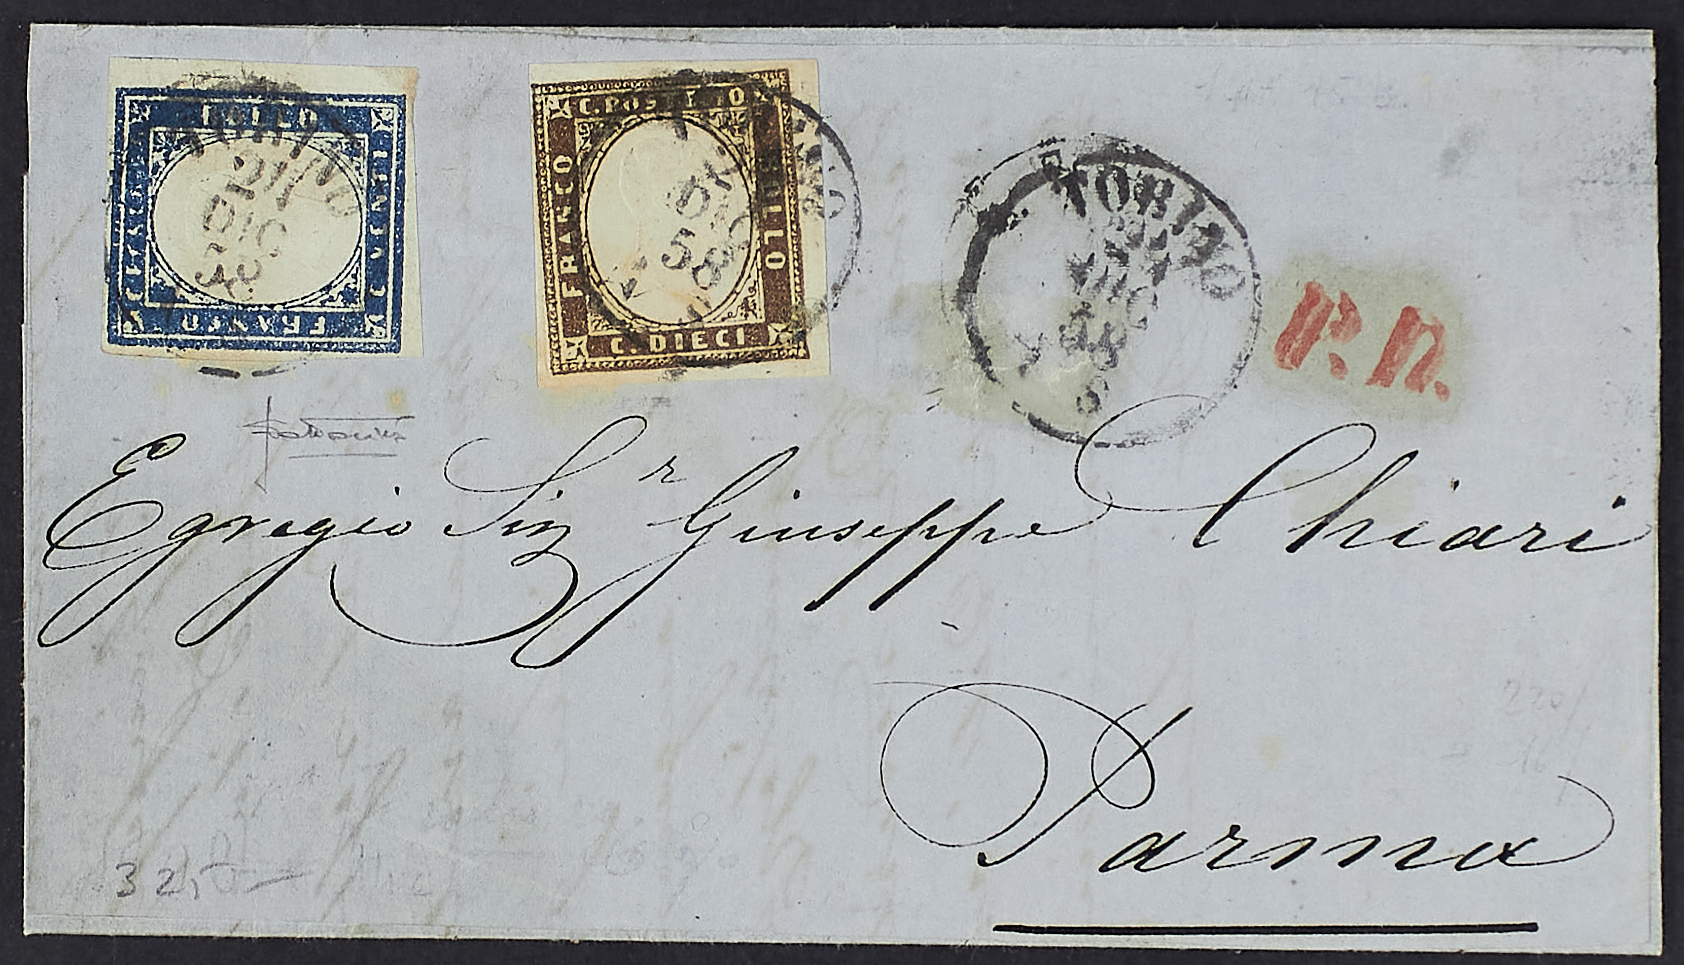 FRANCO
BOLLO
C. VENTI
C. POSTE 10
FRANCO
BOLLO
C. DIECI
TORINO
21
DIC
58
DIC
58
TORINO
DIC
58
P. D.
Egregio Sigr Giuseppe Chiari
Parma